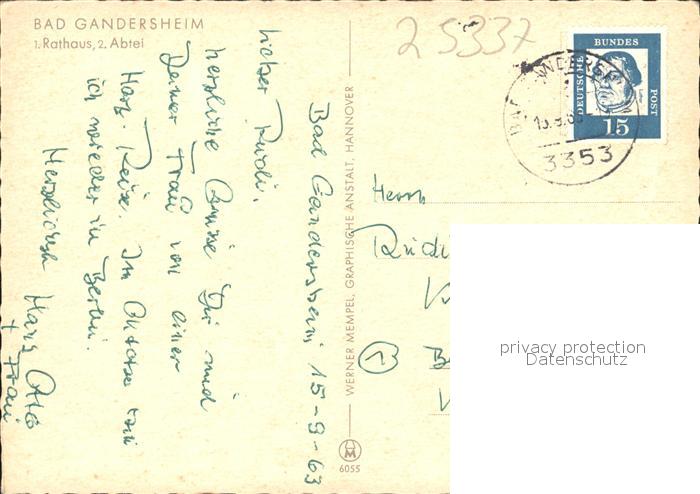 BAD GANDERSHEIM
1. Rathaus, 2. Abtei
25337
Bad Gandersheim 15-9-63
Lieber Rudi.
herzliche Grüsse Dir und
Deiner Frau von einer
Harz-Reise. Im Oktober bin
ich wieder in Berlin.
Herzlichst Hans Otto
+ Frau
WERNER MEMPEL, GRAPHISCHE ANSTALT, HANNOVER
6055
DEUTSCHE
BUNDES
POST
15
3353
Herrn
Rudi
1
privacy protection
Datenschutz